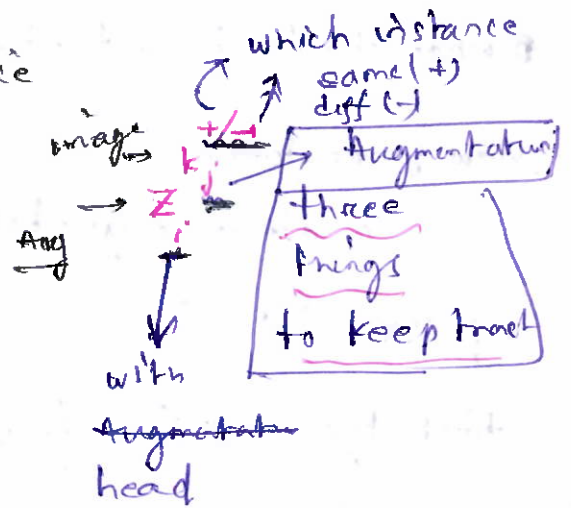 which instance
same (+)
diff (-)
image
+/-
Augmentation
k
j
Z
Aug
i
three
things
to keep track
with
Augmentation
head